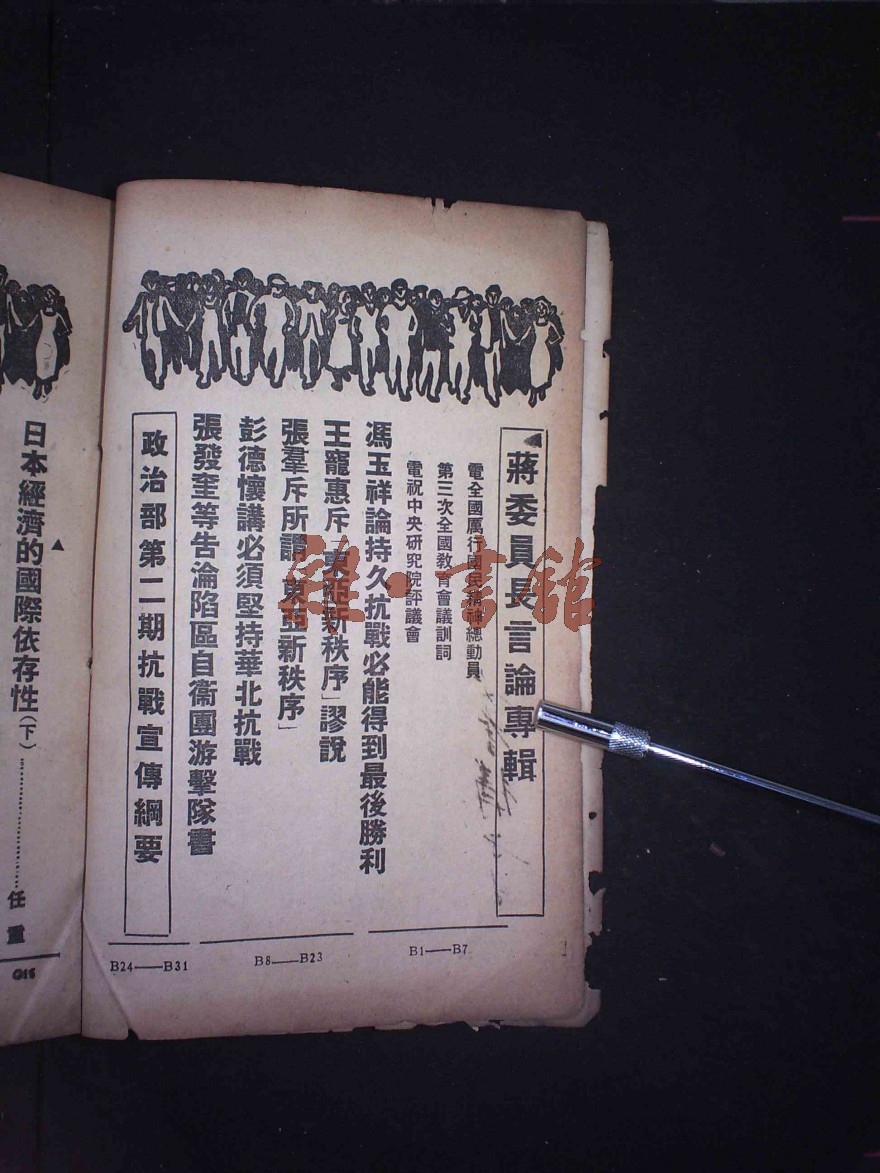 蔣委員長言論專輯
電全國厲行國民精神總動員
第三次全國教育會議訓詞
電祝中央研究院評議會
馮玉祥論持久抗戰必能得到最後勝利
王寵惠斥「東亞新秩序」謬說
張羣斥所謂「東亞新秩序」
彭德懷講必須堅持華北抗戰
張發奎等告淪陷區自衞團游擊隊書
政治部第二期抗戰宣傳綱要
B1——B7
B8——B23
B24——B31
日本經濟的國際依存性（下）…………………任重
G16
雜·書館